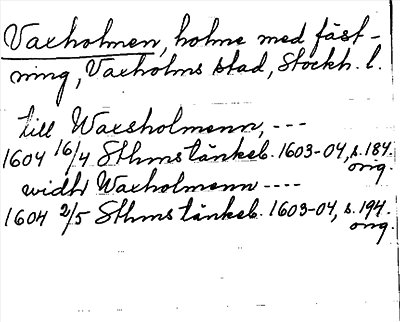 Vaxholmen, holme med fäst-
ning, Vaxholms stad, Stockh. l.
till Waxsholmenn, ---
1604 16/4 Sthms tänkeb. 1603-04, s. 184.
orig.
widh Waxholmenn ----
1604 2/5 Sthms tänkeb. 1603-04, s. 194.
orig.